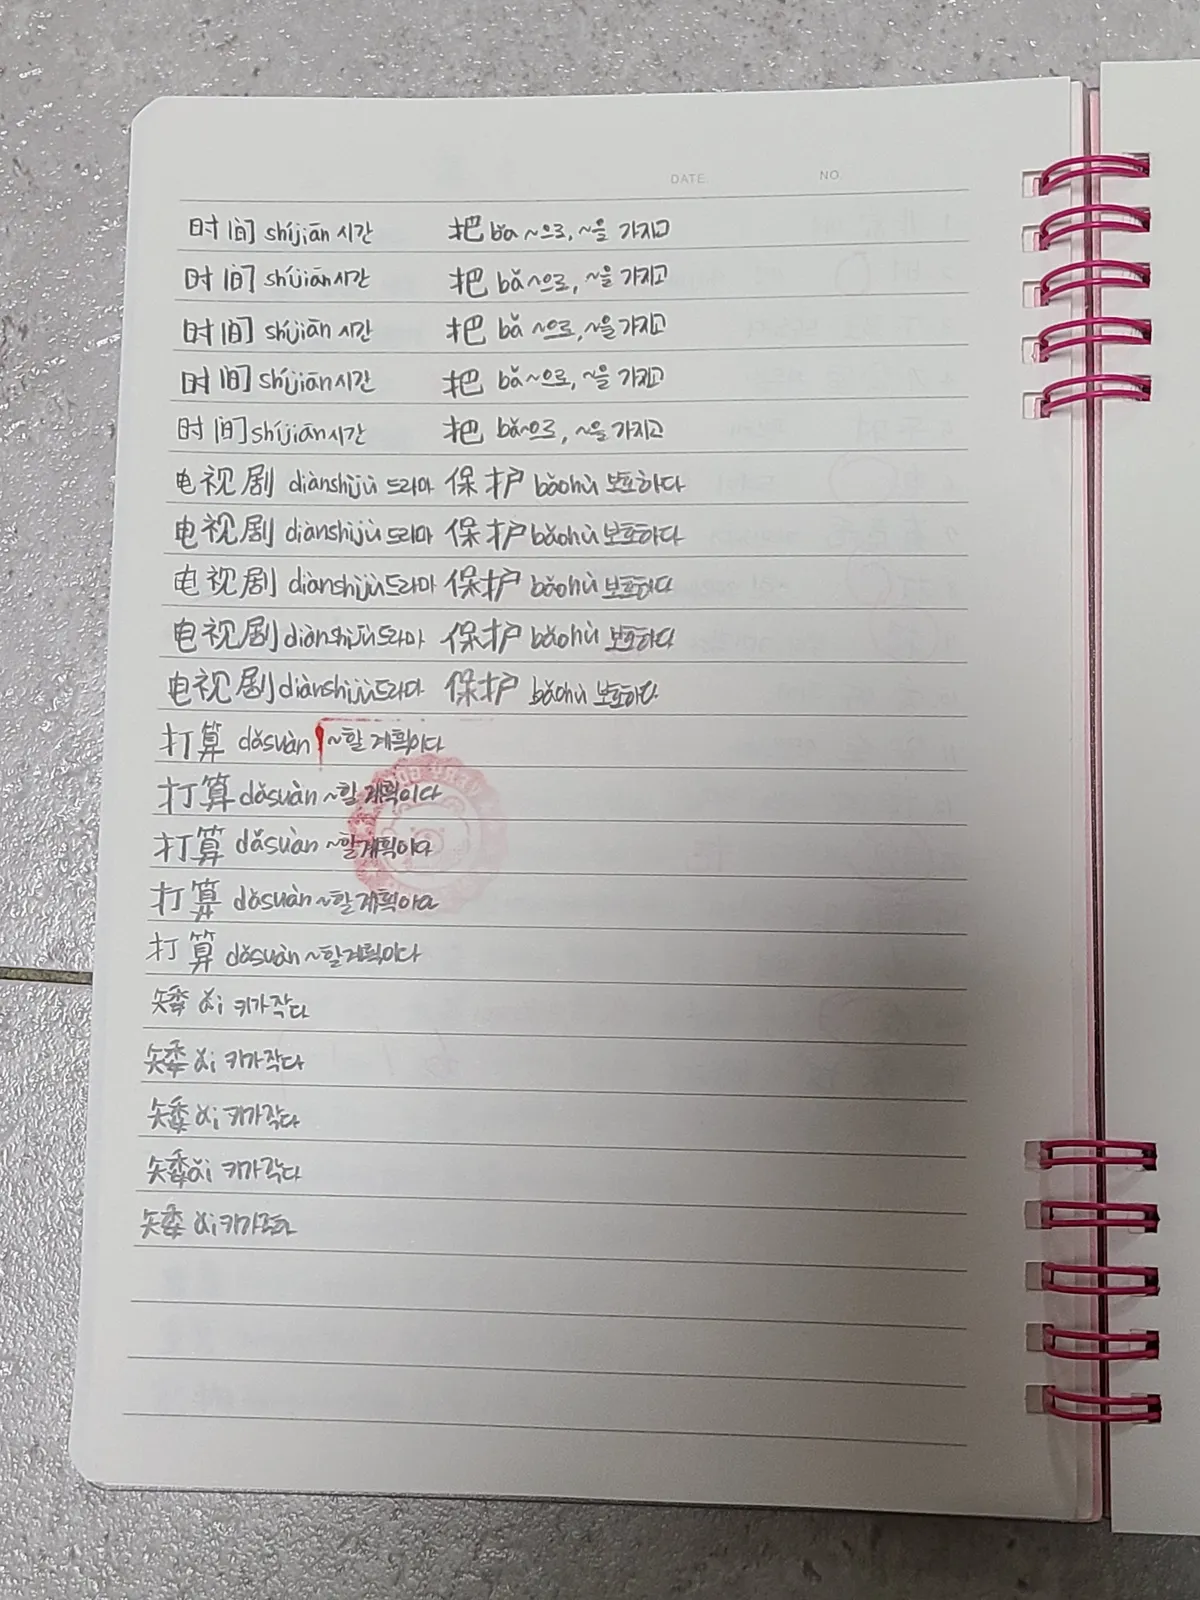 DATE. NO.
时间 shíjiān 시간 把 bǎ ~으로, ~을 가지고
时间 shíjiān 시간 把 bǎ ~으로, ~을 가지고
时间 shíjiān 시간 把 bǎ ~으로, ~을 가지고
时间 shíjiān 시간 把 bǎ ~으로, ~을 가지고
时间 shíjiān 시간 把 bǎ ~으로, ~을 가지고
电视剧 diànshìjù 드라마 保护 bǎohù 보호하다
电视剧 diànshìjù 드라마 保护 bǎohù 보호하다
电视剧 diànshìjù 드라마 保护 bǎohù 보호하다
电视剧 diànshìjù 드라마 保护 bǎohù 보호하다
电视剧 diànshìjù 드라마 保护 bǎohù 보호하다
打算 dǎsuàn ~할 계획이다
打算 dǎsuàn ~할 계획이다
打算 dǎsuàn ~할 계획이다
打算 dǎsuàn ~할 계획이다
打算 dǎsuàn ~할 계획이다
矮 ǎi 키가 작다
矮 ǎi 키가 작다
矮 ǎi 키가 작다
矮 ǎi 키가 작다
矮 ǎi 키가 작다